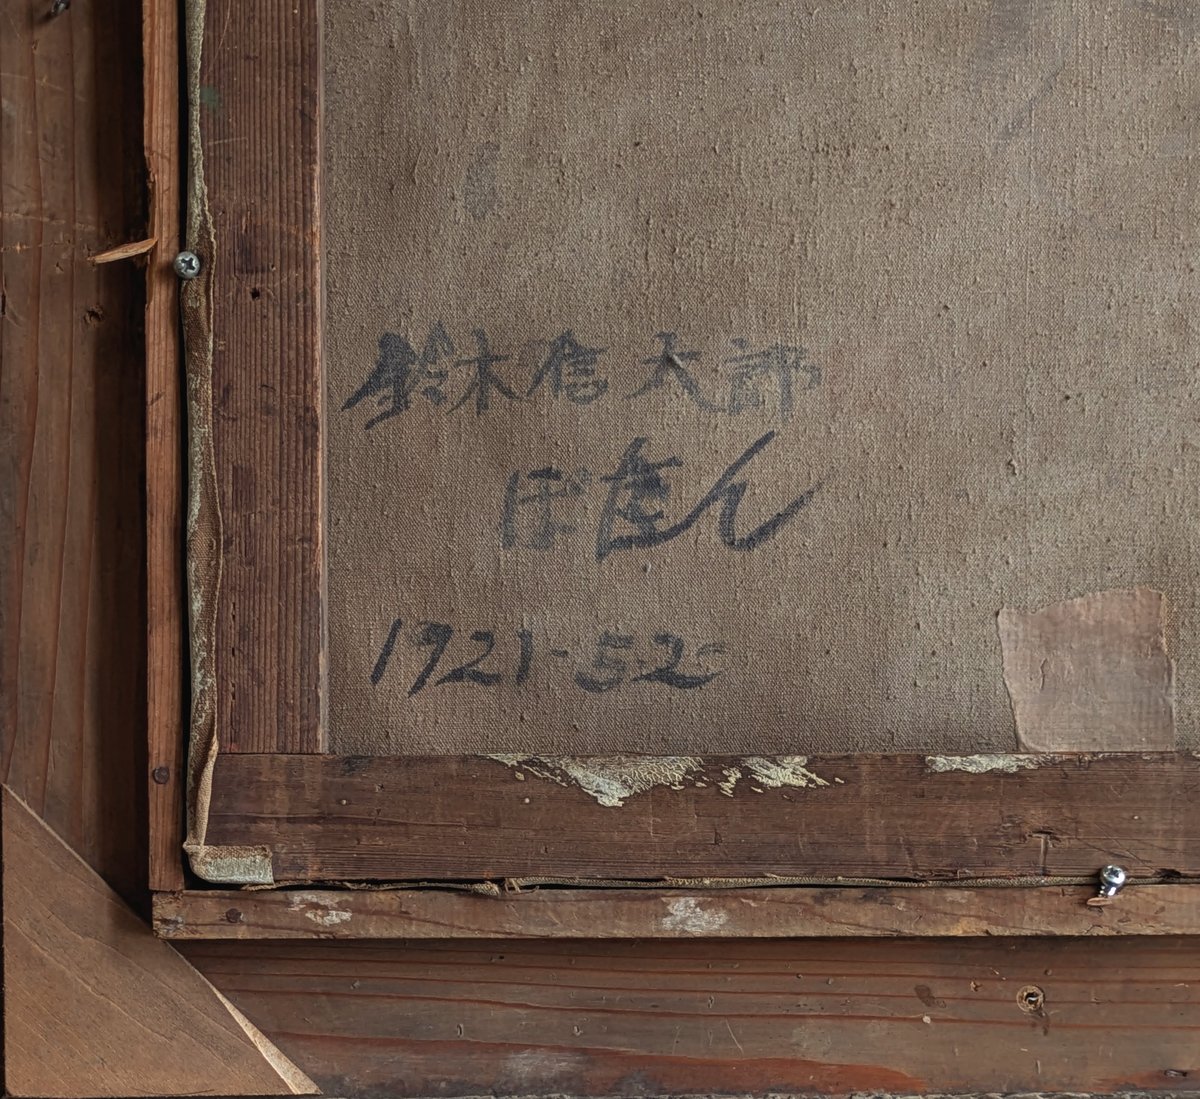 鈴木信太郎
ぼたん
1921-5.2